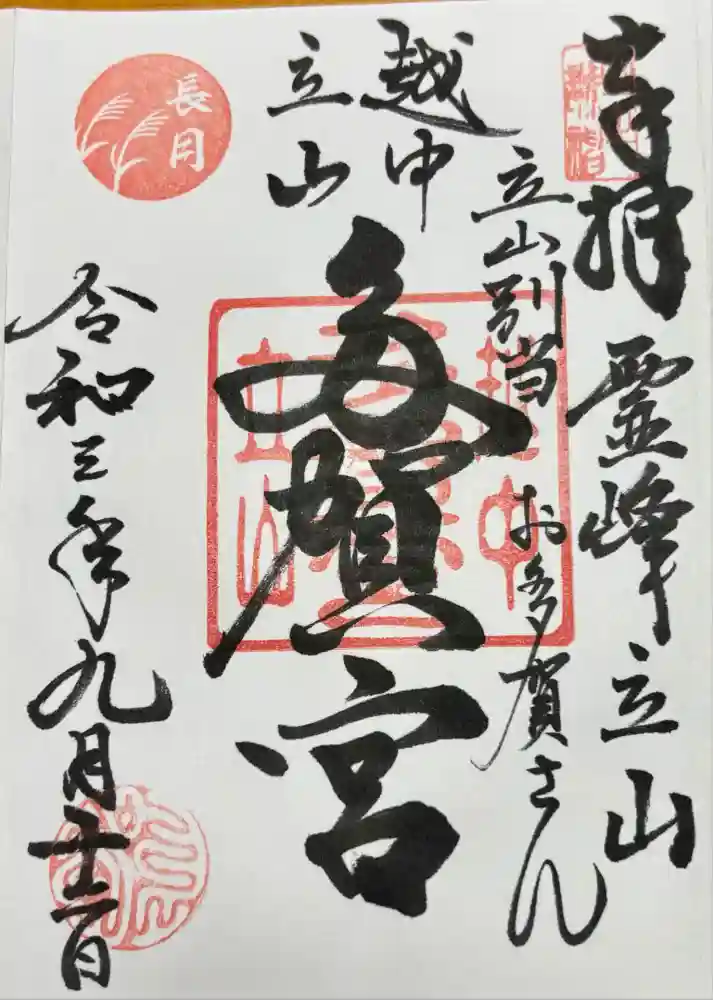 奉拝 霊峰立山
立山別当 お多賀さん
越中
立山
多賀宮
越中
立山
長月
令和三年九月十二日